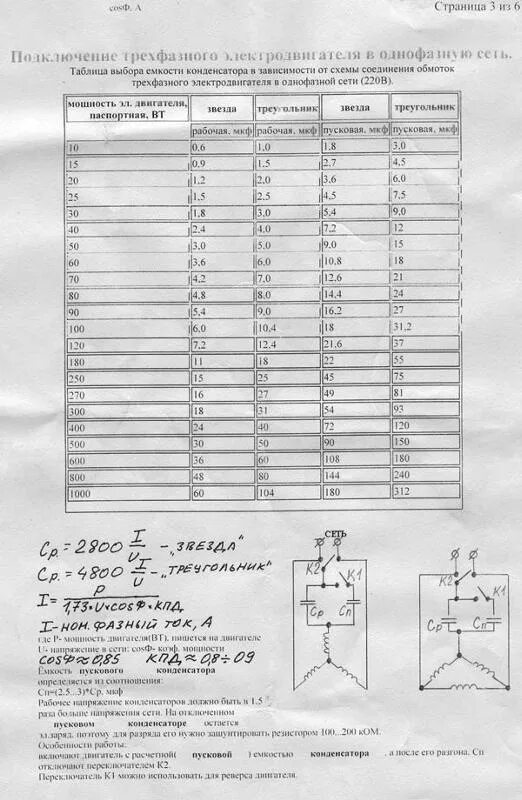 cosФ. А
Страница 3 из 6
Подключение трехфазного электродвигателя в однофазную сеть.
Таблица выбора емкости конденсатора в зависимости от схемы соединения обмоток
трехфазного электродвигателя в однофазной сети (220В).
мощность эл. двигателя, паспортная, ВТ звезда треугольник звезда треугольник
рабочая, мкф рабочая, мкф пусковая, мкф пусковая, мкф
10 0,6 1,0 1,8 3,0
15 0,9 1,5 2,7 4,5
20 1,2 2,0 3,6 6,0
25 1,5 2,5 4,5 7,5
30 1,8 3,0 5,4 9,0
40 2,4 4,0 7,2 12
50 3,0 5,0 9,0 15
60 3,6 6,0 10,8 18
70 4,2 7,0 12,6 21
80 4,8 8,0 14,4 24
90 5,4 9,0 16,2 27
100 6,0 10,4 18 31,2
120 7,2 12,4 21,6 37
180 11 18 22 55
250 15 25 45 75
270 16 27 49 81
300 18 31 54 93
400 24 40 72 120
500 30 50 90 150
600 36 60 108 180
800 48 80 144 240
1000 60 104 180 312
Ср.=2800 I/U - „ЗВЕЗДА"
Ср.=4800 I/U -„ТРЕУГОЛЬНИК"
I= P/1,73•U•cosФ•КПД
I-НОМ. ФАЗНЫЙ ТОК, А
где Р- мощность двигателя(ВТ). пишется на двигателе
U- напряжение в сети: cosФ- коэф. мощности
cosФ≈0,85 КПД≈0,8÷09
Ёмкость пускового конденсатора
определяется из соотношения:
Сп=(2.5...3)*Ср. мкф
Рабочее напряжение конденсаторов должно быть в 1.5
раза больше напряжения сети. На отключенном
пусковом конденсаторе остается
эл.заряд. поэтому для разряда его нужно зашунтировать резистором 100...200 кОМ.
Особенности работы:
включают двигатель с расчетной( пусковой ) емкостью конденсатора . а после его разгона. Сп
отключают переключателем К2.
Переключатель К1 можно использовать для реверса двигателя.
СЕТЬ
К2
К1
Ср
Сп
К2
К1
Ср
Сп